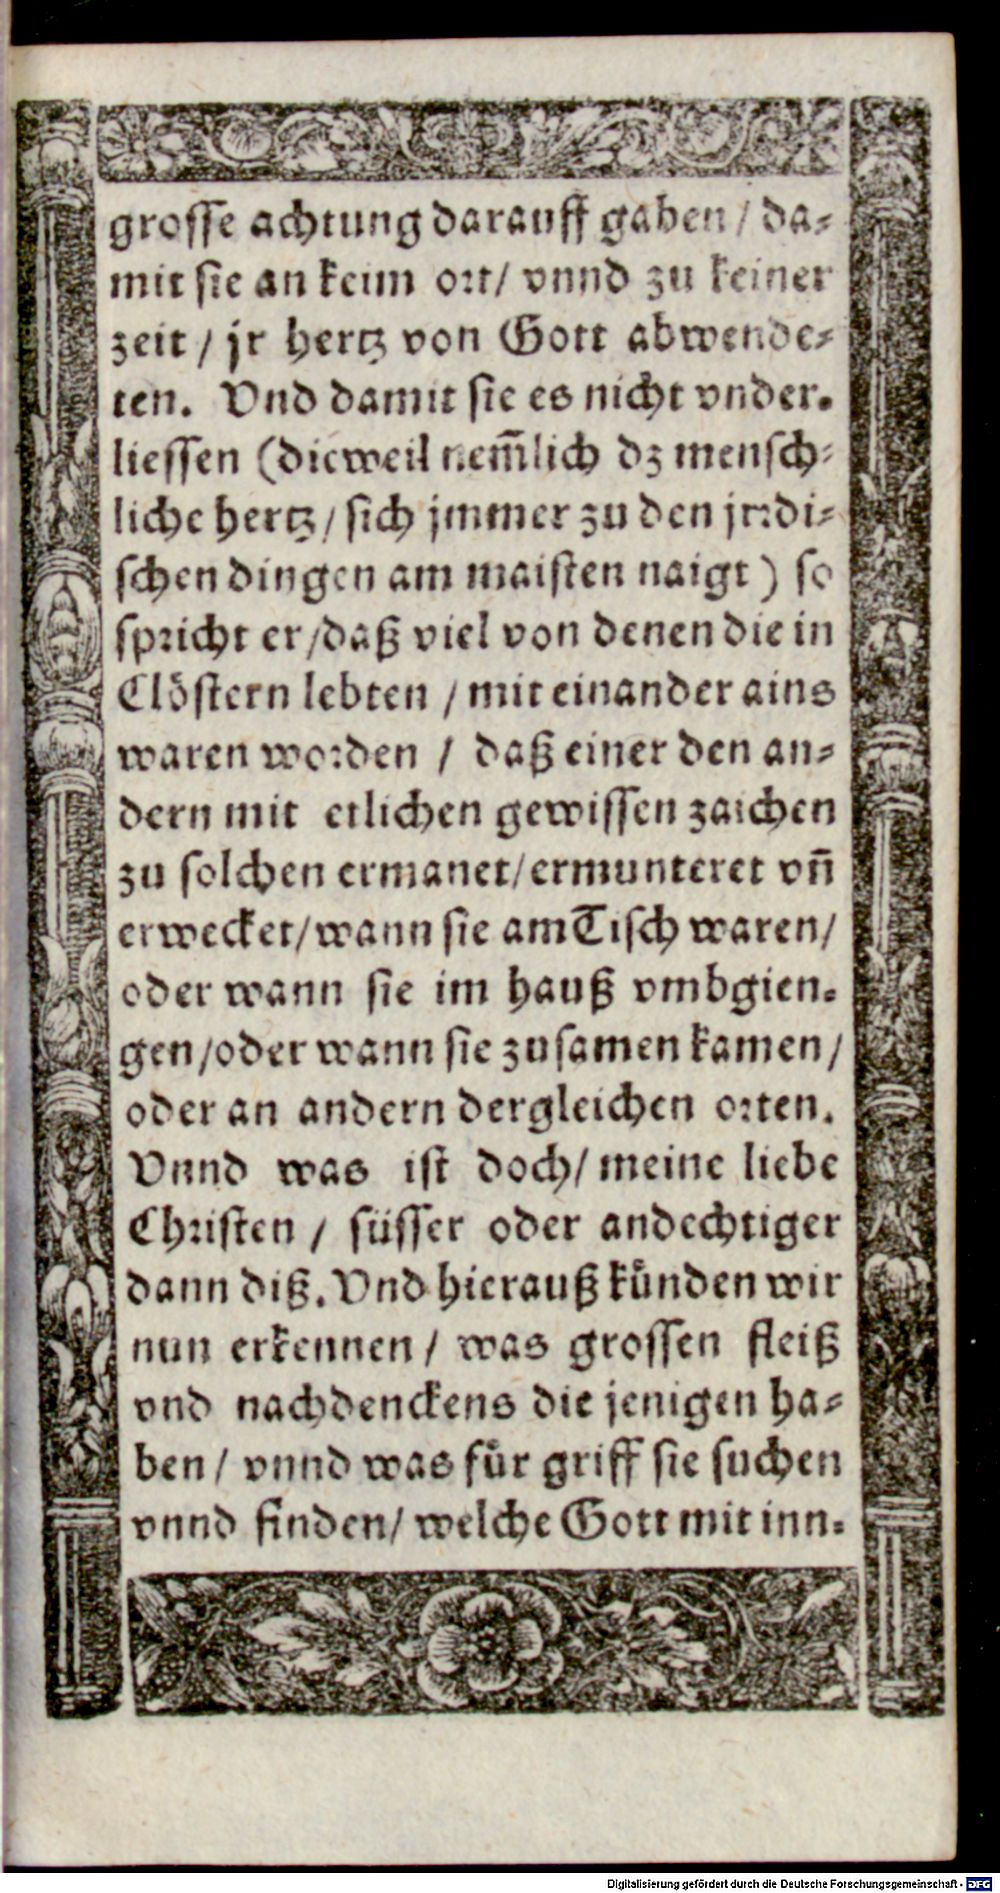 grosse achtung darauff gaben / da-
mit sie an keim ort / vnnd zu keiner
zeit / jr hertz von Gott abwende-
ten. Vnd damit sie es nicht vnder-
liessen (dieweil nem̃lich dz mensch-
liche hertz / sich jmmer zu den jrrdi-
schen dingen am maisten naigt) so
spricht er / daß viel von denen die in
Clöstern lebten / mit einander ains
waren worden / daß einer den an-
dern mit etlichen gewissen zaichen
zu solchen ermanet / ermunteret vñ
erwecket / wann sie am Tisch waren /
oder wann sie im hauß vmbgien-
gen / oder wann sie zusamen kamen /
oder an andern dergleichen orten.
Vnnd was ist doch / meine liebe
Christen / süsser oder andechtiger
dann diß. Vnd hierauß künden wir
nun erkennen / was grossen fleiß
vnd nachdenckens die jenigen ha-
ben / vnnd was für griff sie suchen
vnnd finden / welche Gott mit inn-
Digitalisierung gefördert durch die Deutsche Forschungsgemeinschaft - DFG